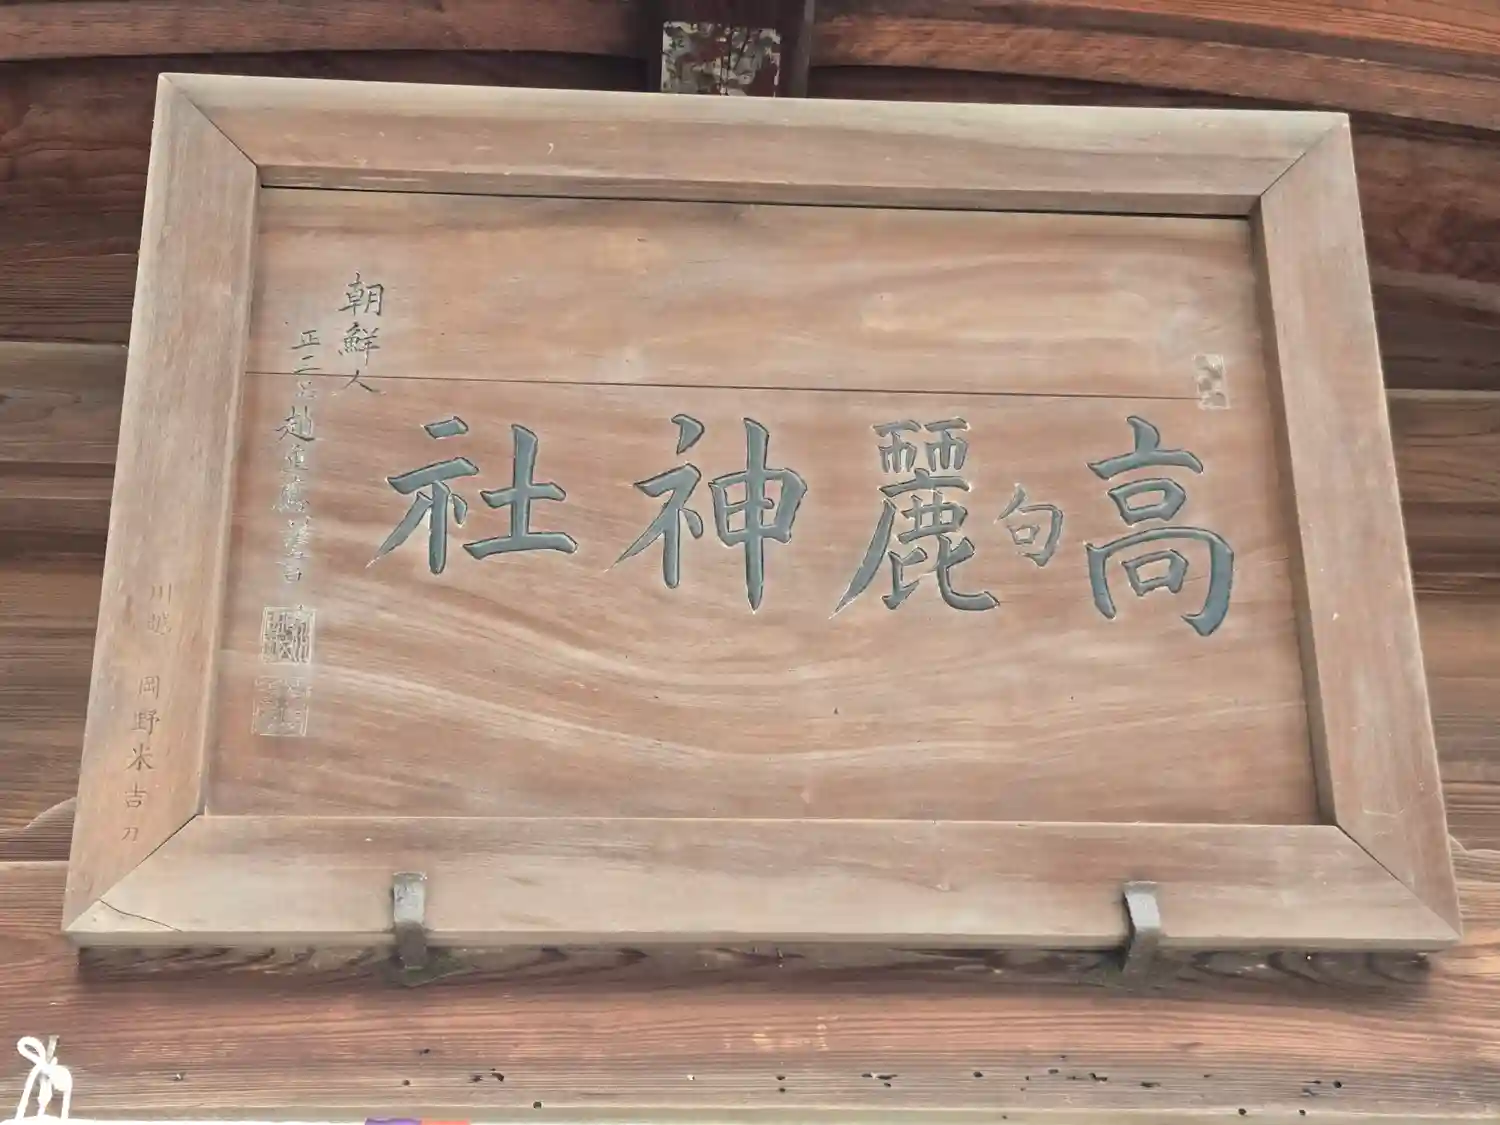 高句麗神社
朝鮮人
正二品趙重應謹書
川越 岡野米吉刀